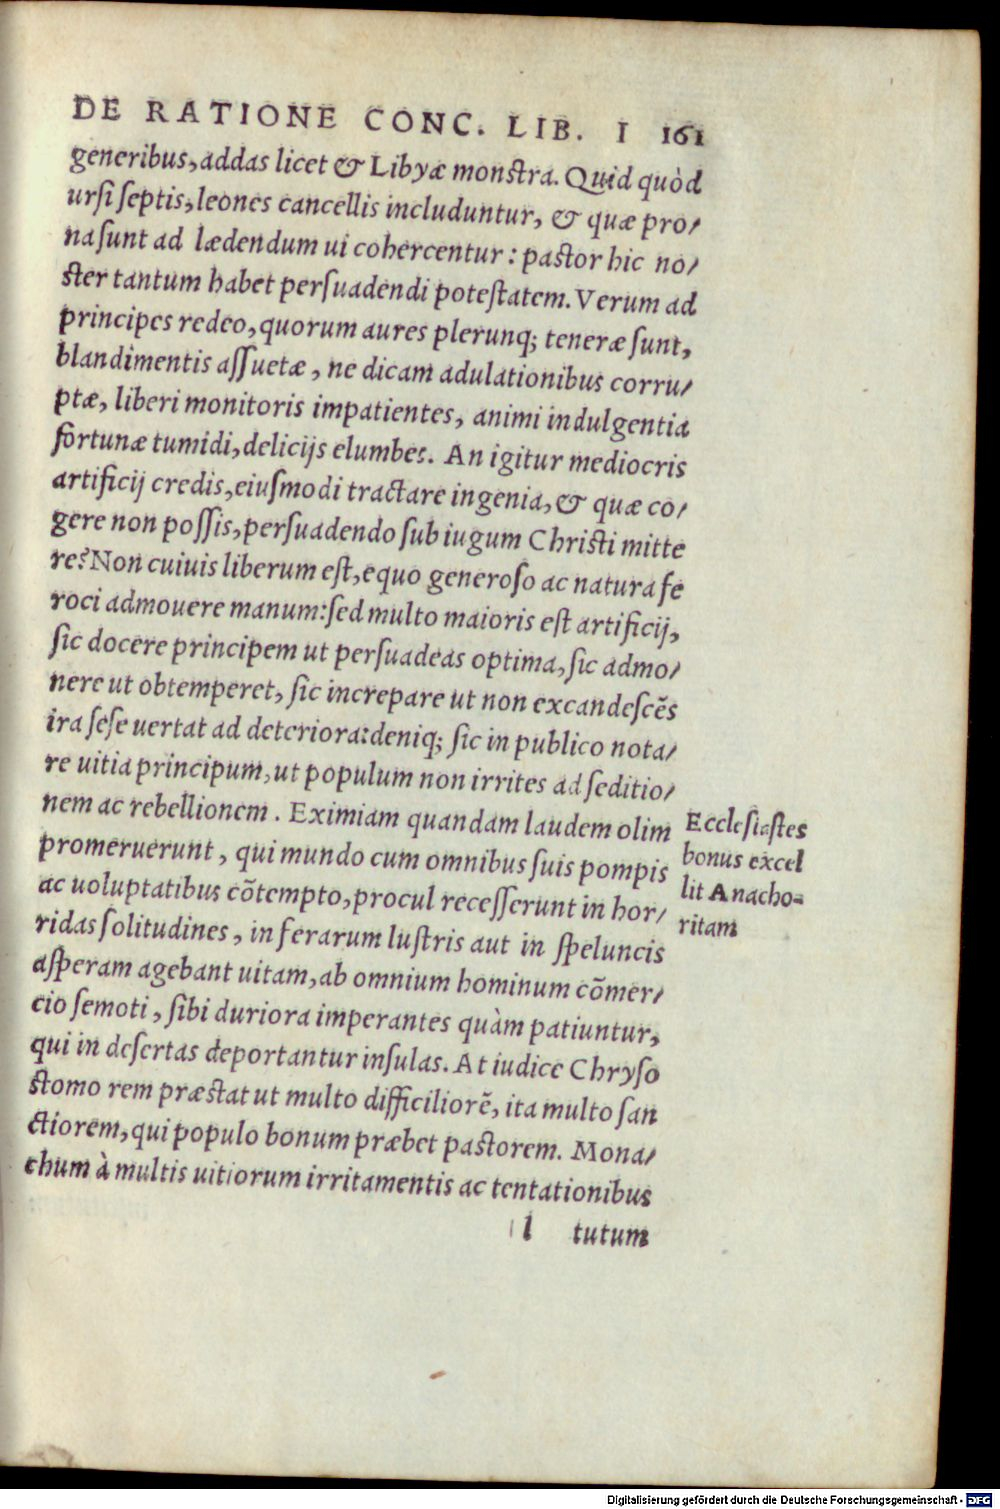 DE RATIONE CONC. LIB. I 161
generibus, addas licet & Libyæ monstra. Quid quòd
ursi septis, leones cancellis includuntur, & quæ pro/
na sunt ad lædendum ui cohercentur: pastor hic no/
ster tantum habet persuadendi potestatem. Verum ad
principes redeo, quorum aures plerunq; teneræ sunt,
blandimentis assuetæ, ne dicam adulationibus corru/
ptæ, liberi monitoris impatientes, animi indulgentia
fortunæ tumidi, delicijs elumbes. An igitur mediocris
artificij credis, eiusmodi tractare ingenia, & quæ co/
gere non possis, persuadendo sub iugum Christi mitte
re? Non cuiuis liberum est, equo generoso ac natura fe
roci admouere manum: sed multo maioris est artificij,
sic docere principem ut persuadeas optima, sic admo/
nere ut obtemperet, sic increpare ut non excandescẽs
ira sese uertat ad deteriora: deniq; sic in publico nota/
re uitia principum, ut populum non irrites ad seditio/
nem ac rebellionem. Eximiam quandam laudem olim
promeruerunt, qui mundo cum omnibus suis pompis
ac uoluptatibus cõtempto, procul recesserunt in hor/
ridas solitudines, in ferarum lustris aut in speluncis
asperam agebant uitam, ab omnium hominum cõmer/
cio semoti, sibi duriora imperantes quàm patiuntur,
qui in desertas deportantur insulas. At iudice Chryso
stomo rem præstat ut multo difficiliorẽ, ita multo san
ctiorem, qui populo bonum præbet pastorem. Mona/
chum à multis uitiorum irritamentis ac tentationibus
l tutum
Ecclesiastes
bonus excel
lit Anacho=
ritam
Digitalisierung gefördert durch die Deutsche Forschungsgemeinschaft - DFG